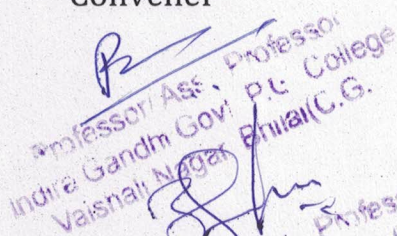 Convener
Professor/ Ass. Professor
Indira Gandhi Gov! P.G. College
Vaishali Nagar Bhilai(C.G.
Profes